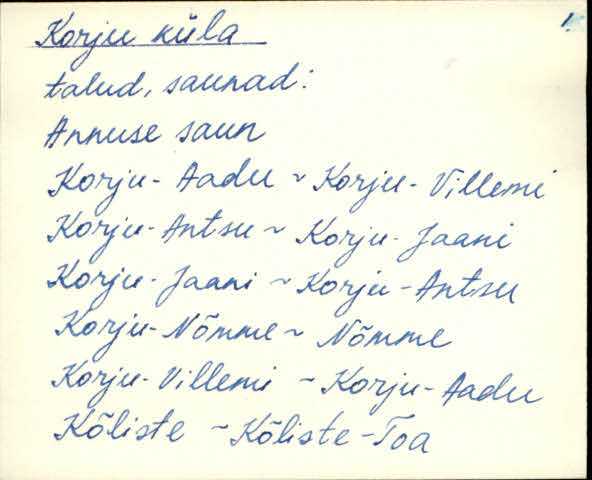 1.
Korju küla
talud, saunad:
Annuse saun
Korju-Aadu ~ Korju-Villemi
Korju-Antsu ~ Korju-Jaani
Korju-Jaani ~ Korju-Antsu
Korju-Nõmme ~ Nõmme
Korju-Villemi ~ Korju-Aadu
Kõliste ~ Kõliste-Toa